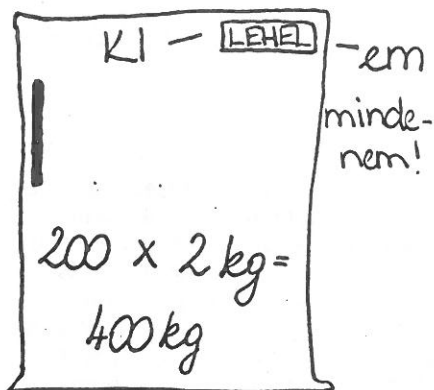 KI – LEHEL –em
minde-
nem!
200 x 2 kg =
400 kg